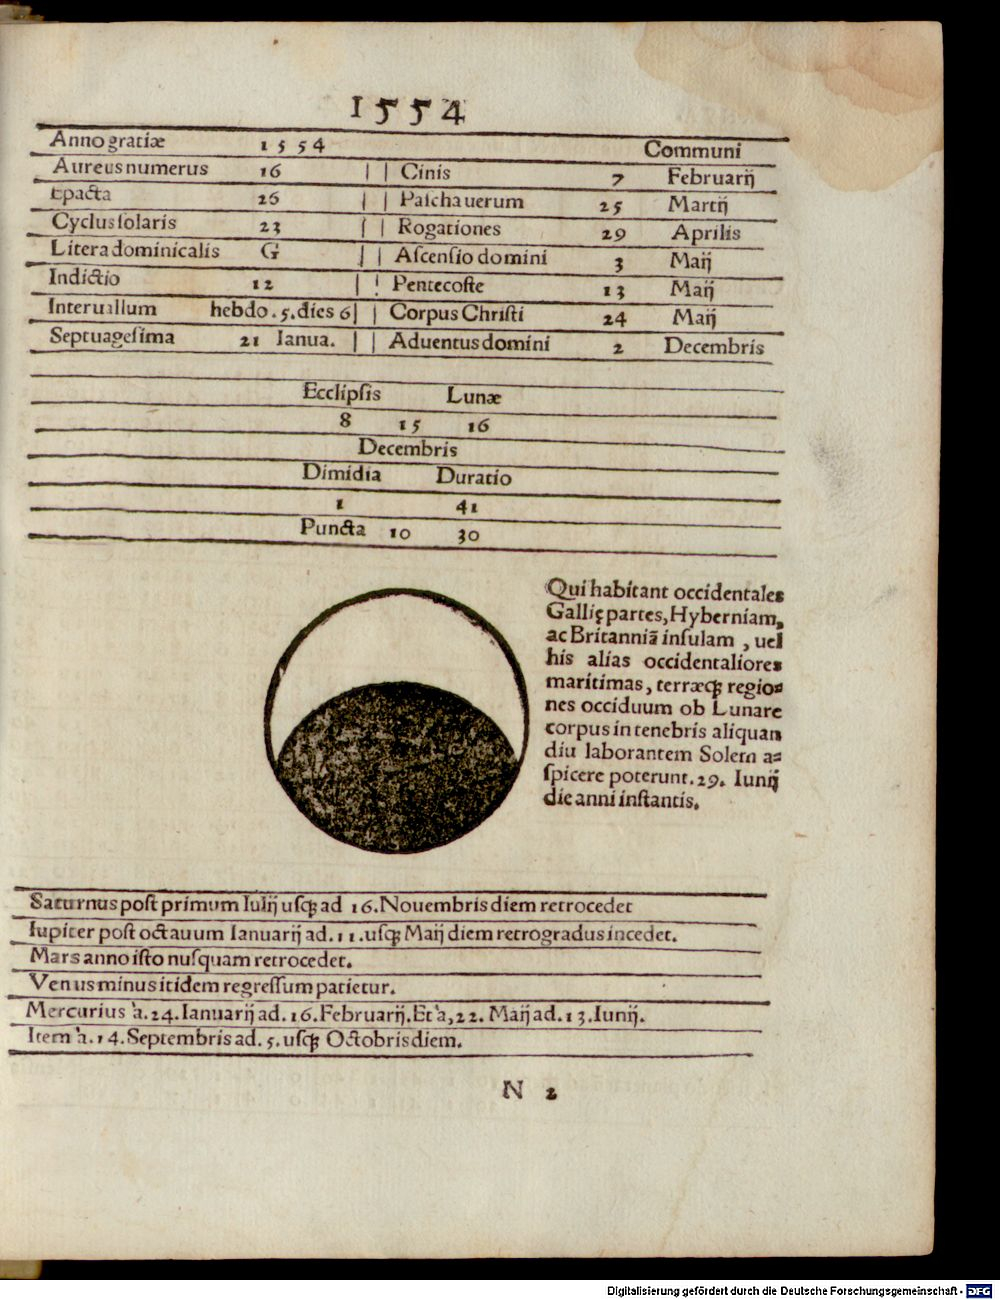 1554
Anno gratiæ 1554 Communi
Aureus numerus 16 || Cinis 7 Februarij
Epacta 26 || Pascha uerum 25 Martij
Cyclus solaris 23 || Rogationes 29 Aprilis
Litera dominicalis G || Ascensio domini 3 Maij
Indictio 12 || Pentecoste 13 Maij
Interuallum hebdo. 5. dies 6 || Corpus Christi 24 Maij
Septuagesima 21 Ianua. || Aduentus domini 2 Decembris
Ecclipsis Lunæ
8 15 16
Decembris
Dimidia Duratio
1 41
Puncta 10 30
Qui habitant occidentales
Gallię partes, Hyberniam,
ac Britanniā insulam, uel
his alias occidentaliores
maritimas, terræq; regio=
nes occiduum ob Lunare
corpus in tenebris aliquan
diu laborantem Solem a=
spicere poterunt. 29. Iunij
die anni instantis.
Saturnus post primum Iulij usq; ad 16. Nouembris diem retrocedet
Iupiter post octauum Ianuarij ad. 11. usq; Maij diem retrogradus incedet.
Mars anno isto nusquam retrocedet.
Venus minus itidem regressum patietur.
Mercurius à. 24. Ianuarij ad. 16. Februarij. Et à, 22. Maij ad. 13. Iunij.
Item à. 14. Septembris ad. 5. usq; Octobris diem.
N 2
Digitalisierung gefördert durch die Deutsche Forschungsgemeinschaft - DFG